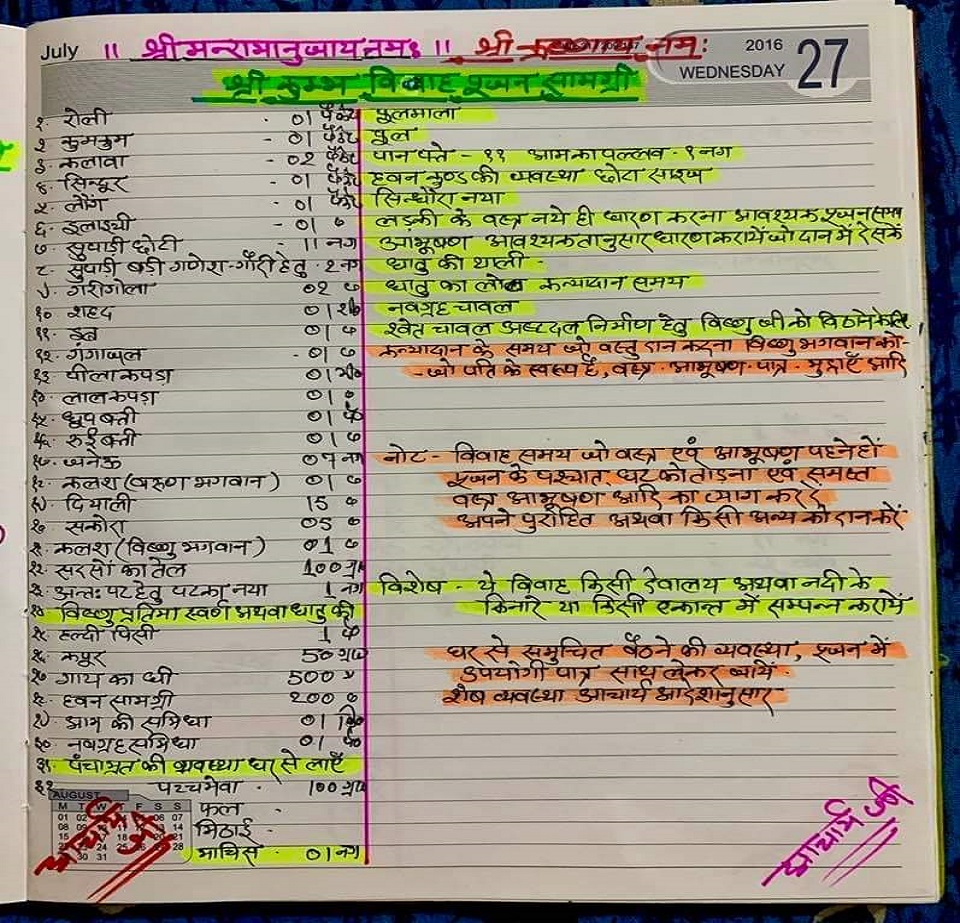 July
॥ श्रीमन्रामानुजाय नमः ॥ श्री नमः
2016
WEDNESDAY 27
श्री कुम्भ विवाह पूजन सामग्री
१. रोली - 01 पैकेट
२. कुमकुम - 01 पैकेट
३. कलावा - 02 पैकेट
४. सिन्दूर - 01 पैकेट
५. लौंग - 01 पैकेट
६. इलाइची - 01 "
७. सुपाडी छोटी - 11 नग
८. सुपाडी बडी गणेश-गौरी हेतु - २ नग
९. गरीगोला 02 "
१०. शहद 01
११. इत्र 01 "
१२. गंगाजल - 01 "
१३. पीला कपडा 01
१४. लाल कपडा 01 "
१५. धुप बत्ती 01 पै
१६. रुई बत्ती 01 "
१७. जनेऊ 07 नग
१८. कलश (वरुण भगवान) 01 "
१९. दियाली 15 "
२०. सकोरा 05 "
२१. कलश (विष्णु भगवान) 01 "
२२. सरसों का तेल 100 ग्राम
२३. अन्तः पट हेतु पटका नया 1 नग
२४. विष्णु प्रतिमा स्वर्ण अथवा धातु की
२५. हल्दी पिसी 1 पै
२६. कपूर 50 ग्राम
२७. गाय का घी 500 "
२८. हवन सामग्री 200 "
२९. आम की समिधा 01 कि
३०. नवग्रह समिधा 01 पै
३१. पंचामृत की व्यवस्था घर से लाएँ
३२ पञ्चमेवा . 100 ग्राम
फल -
मिठाई -
माचिस 01 नग
फूलमाला
फूल
पान पत्ते - ११ आम का पल्लव - १ नग
हवन कुण्ड की व्यवस्था छोटा साइज
सिन्धौरा नया
लड़की के वस्त्र नये ही धारण करना आवश्यक पूजन समय
आभूषण आवश्यकतानुसार धारण करायें जो दान में दे सकें
धातु की थाली -
धातु का लोटा कन्यादान समय
नवग्रह चावल
श्वेत चावल अष्टदल निर्माण हेतु विष्णु जी को बिठाने के लिए
कन्यादान के समय जो वस्तु दान करना विष्णु भगवान को -
- जो पति के स्वरूप हैं, वस्त्र - आभूषण - पात्र - मुद्राएँ आदि
नोट - विवाह समय जो वस्त्र एवं आभूषण पहने हों
पूजन के पश्चात् घट को तोडना एवं समस्त
वस्त्र आभूषण आदि का त्याग कर दें
अपने पुरोहित अथवा किसी अन्य को दान करें
विशेष - ये विवाह किसी देवालय अथवा नदी के
किनारे या किसी एकान्त में सम्पन्न करायें
घर से समुचित बैठने की व्यवस्था, पूजन में
उपयोगी पात्र साथ लेकर जायें .
शेष व्यवस्था आचार्य आदेशानुसार
AUGUST
M T W F S S
आचार्य जी
आचार्य जी